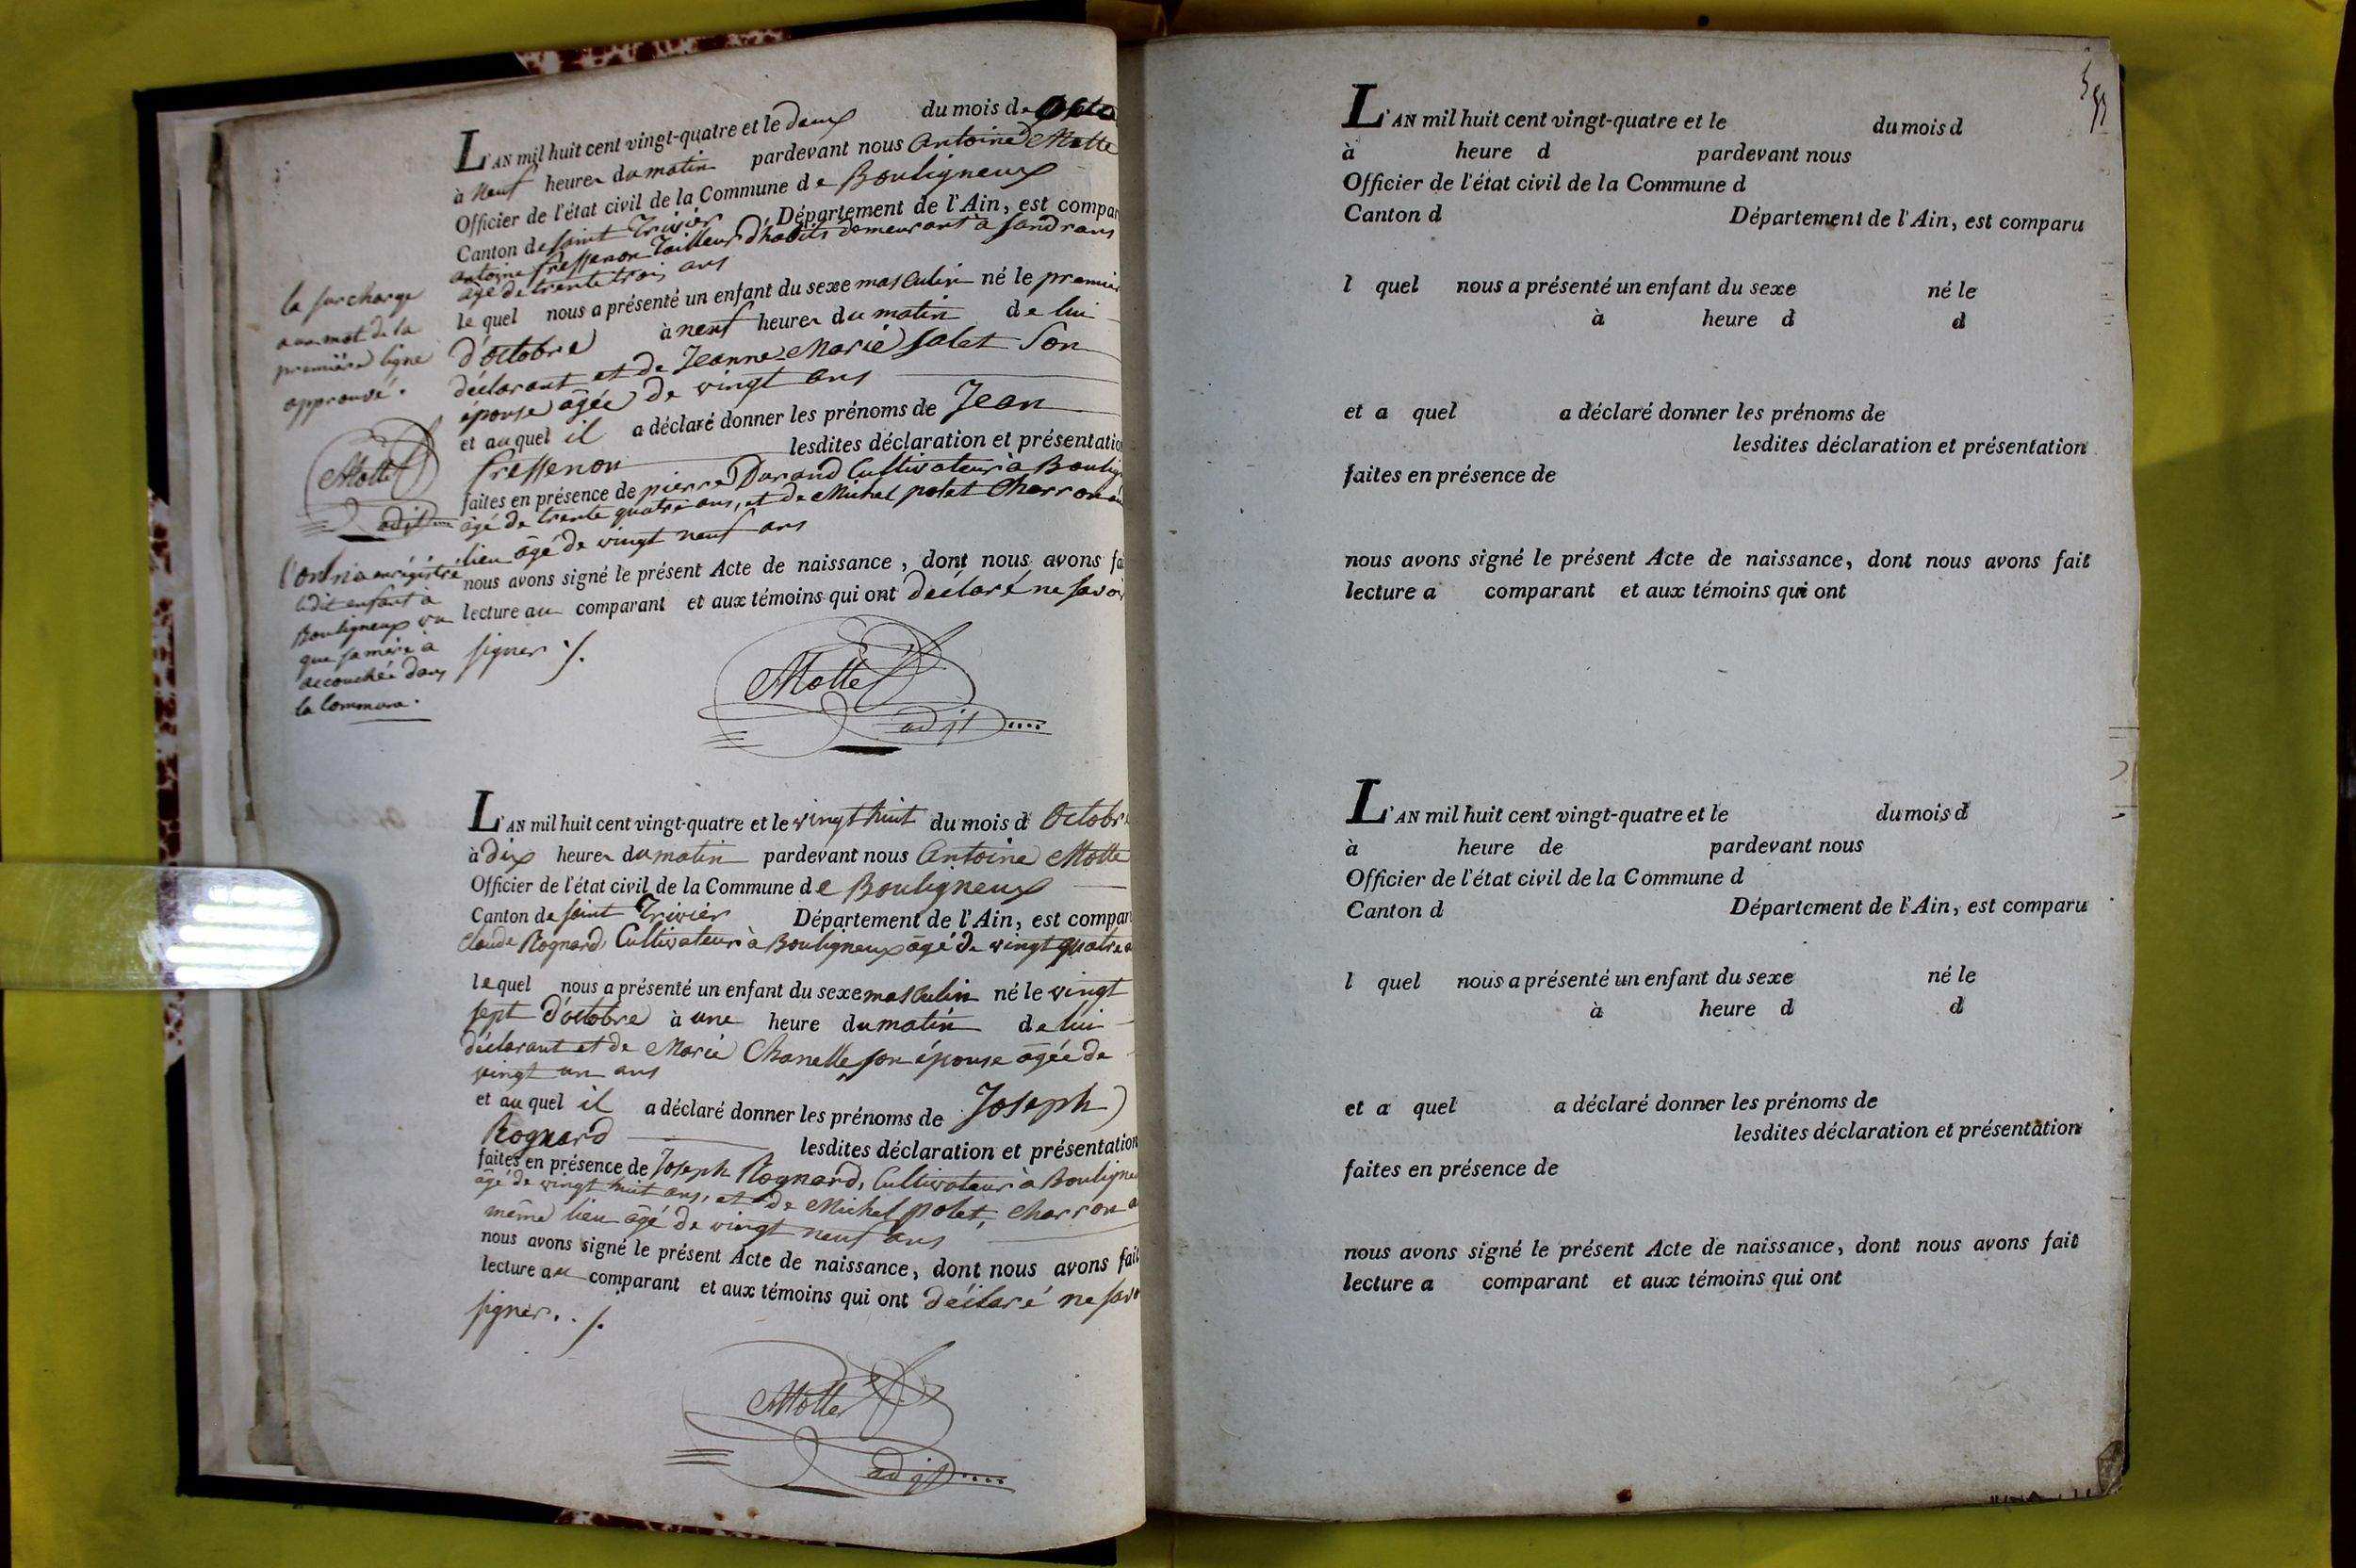 L'AN mil huit cent vingt-quatre et le deux du mois de
à neuf heures du matin pardevant nous Antoine Motte
Officier de l'état civil de la Commune de Bouligneux
Canton de saint Trivier Département de l'Ain, est compar
antoine fressenon Tailleur d'habits demeurant à Sandrans
âgé de trente trois ans
le quel nous a présenté un enfant du sexe masculin né le premier
d'octobre à neuf heures du matin de lui
déclarant et de Jeanne Marie Salet Son
épouse âgée de vingt ans
et au quel il a déclaré donner les prénoms de Jean
fressenon lesdites déclaration et présentation
faites en présence de pierre Durand Cultivateur à Boulig
âgé de trente quatre ans, et de Michel polet Charron
lieu âgé de vingt neuf ans
nous avons signé le présent Acte de naissance, dont nous avons fa
lecture au comparant et aux témoins qui ont déclaré ne savoir
signer ./.
Motte
adjt
la surcharge
au mot de la
première ligne
approuvé.
Motte
adjt
l'on n'a enrégistré
ledit enfant à
Bouligneux vu
que sa mère à
accouchée dans
la Commune.
L'AN mil huit cent vingt-quatre et le vingt huit du mois d Octobre
à dix heures du matin pardevant nous Antoine Motte
Officier de l'état civil de la Commune de Bouligneux
Canton de saint Trivier Département de l'Ain, est compar
Claude Rognard, Cultivateur à Bouligneux âgé de vingt quatre a
le quel nous a présenté un enfant du sexe masculin né le vingt
sept d'octobre à une heure du matin de lui
déclarant et de Marie Chanelle son épouse âgée de
vingt un ans
et au quel il a déclaré donner les prénoms de Joseph
Rognard lesdites déclaration et présentation
faites en présence de Joseph Rognard, Cultivateur à Bouligne
âgé de vingt huit ans, et de Michel polet, charron a
même lieu âgé de vingt neuf ans
nous avons signé le présent Acte de naissance, dont nous avons fait
lecture au comparant et aux témoins qui ont déclaré ne savo
signer. ./.
Motte
adjt
L'AN mil huit cent vingt-quatre et le du mois d
à heure d pardevant nous
Officier de l'état civil de la Commune d
Canton d Département de l'Ain, est comparu
l quel nous a présenté un enfant du sexe né le
à heure d d
et a quel a déclaré donner les prénoms de
lesdites déclaration et présentation
faites en présence de
nous avons signé le présent Acte de naissance, dont nous avons fait
lecture a comparant et aux témoins qui ont
L'AN mil huit cent vingt-quatre et le du mois d
à heure de pardevant nous
Officier de l'état civil de la Commune d
Canton d Département de l'Ain, est comparu
l quel nous a présenté un enfant du sexe né le
à heure d d
et a quel a déclaré donner les prénoms de
lesdites déclaration et présentation
faites en présence de
nous avons signé le présent Acte de naissance, dont nous avons fait
lecture a comparant et aux témoins qui ont